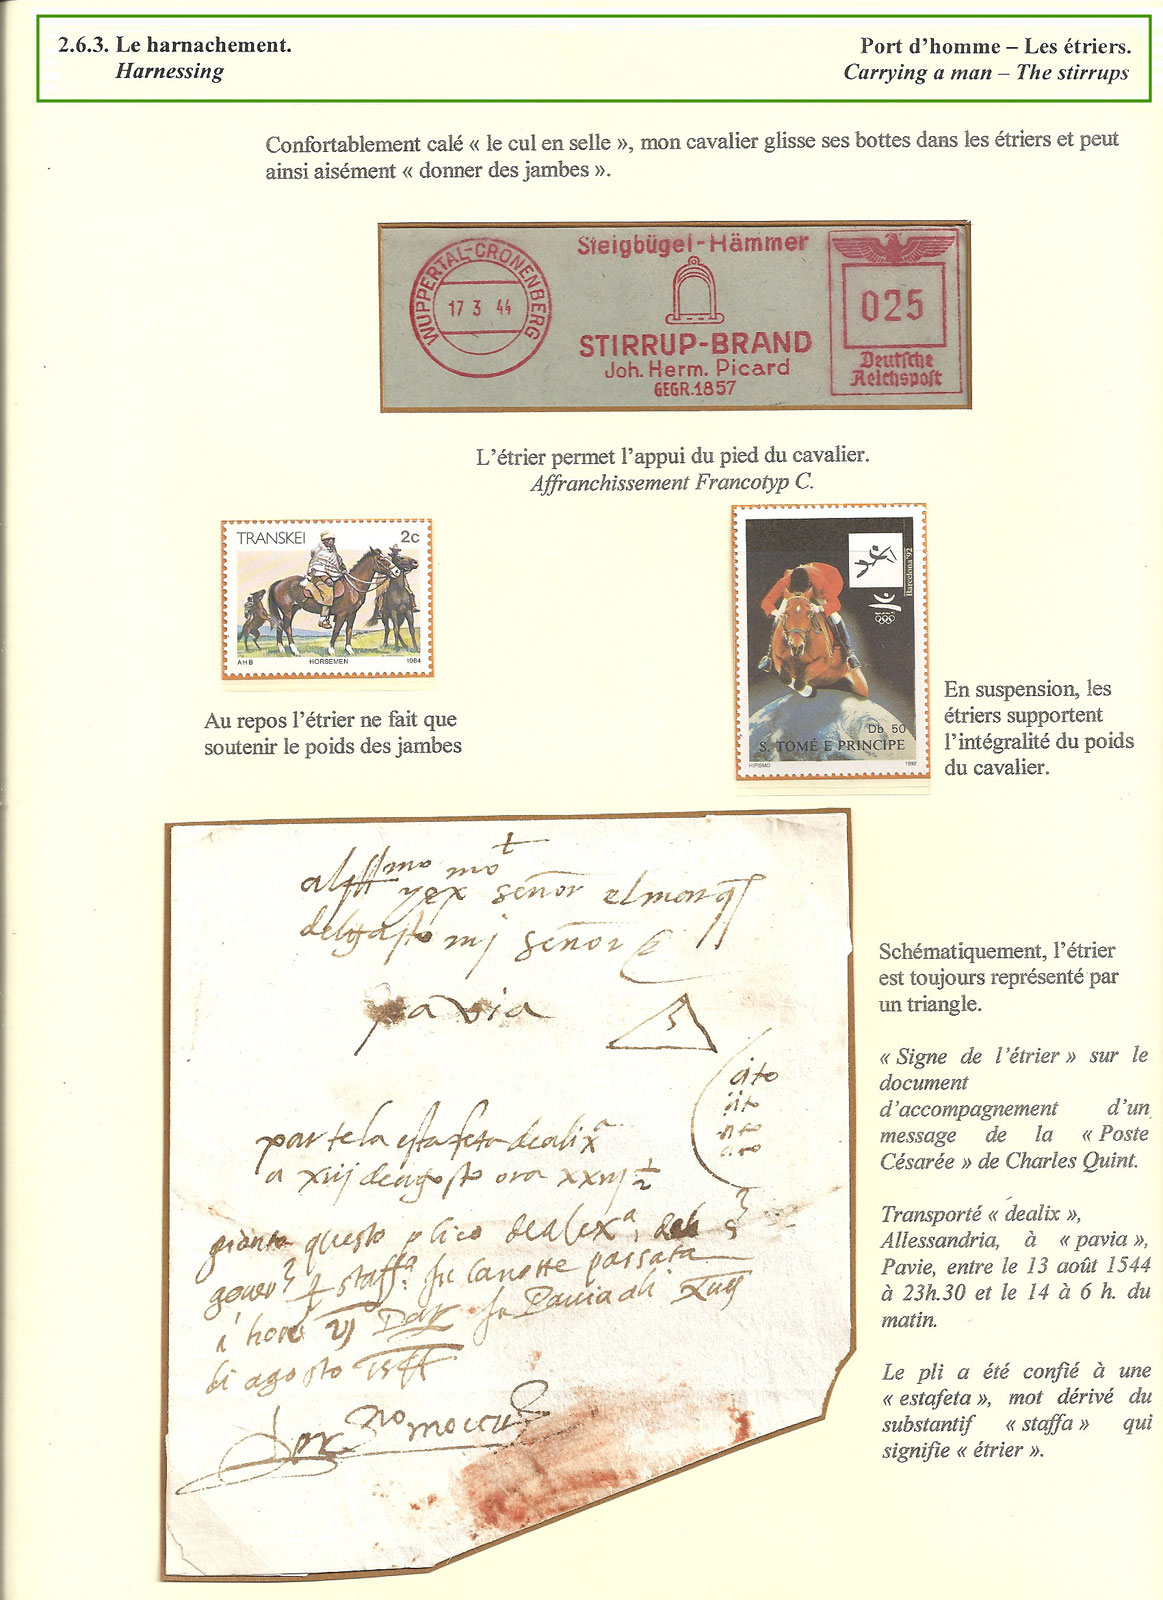 2.6.3. Le harnachement.
Harnessing
Port d’homme – Les étriers.
Carrying a man – The stirrups
Confortablement calé « le cul en selle », mon cavalier glisse ses bottes dans les étriers et peut
ainsi aisément « donner des jambes ».
WUPPERTAL-CRONENBERG
17 3 44
Steigbügel-Hämmer
STIRRUP-BRAND
Joh. Herm. Picard
GEGR.1857
025
Deutsche
Reichspost
L’étrier permet l’appui du pied du cavalier.
Affranchissement Francotyp C.
TRANSKEI 2c
AHB HORSEMEN 1984
Au repos l’étrier ne fait que
soutenir le poids des jambes
Barcelona'92
Db 50
S. TOMÉ E PRINCIPE
HIPISMO 1992
En suspension, les
étriers supportent
l’intégralité du poids
du cavalier.
señor el marqs
delgasto mj señor
pavia
cito
cito
cito
cito
parte la estafeta dealixa
a xiij de agosto ora xxiij 1/2
gionto questo plico dealexa
staffa fu la notte passata
Pavia
di agosto 1544
Schématiquement, l’étrier
est toujours représenté par
un triangle.
« Signe de l’étrier » sur le
document
d’accompagnement d’un
message de la « Poste
Césarée » de Charles Quint.
Transporté « dealix »,
Allessandria, à « pavia »,
Pavie, entre le 13 août 1544
à 23h.30 et le 14 à 6 h. du
matin.
Le pli a été confié à une
« estafeta », mot dérivé du
substantif « staffa » qui
signifie « étrier ».